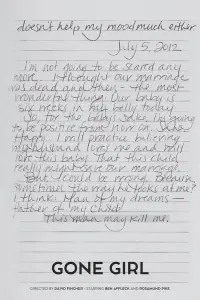 doesn't help my mood much either
July 5, 2012
I'm not going to be scared any
more. I thought our marriage
was dead and then - the most
wonderful thing. Our baby is
six weeks in my belly today
So, for the baby's sake, I'm going
to be positive from now on.
Happy. I will practice believing
my husband loves me and will
love this baby. That this child
really might save our marriage.
But I could be wrong. Because
sometimes the way he looks at me?
I think: Man of my dreams -
father of my child:
This man may kill me.
GONE GIRL
DIRECTED BY DAVID FINCHER STARRING BEN AFFLECK AND ROSAMUND PIKE